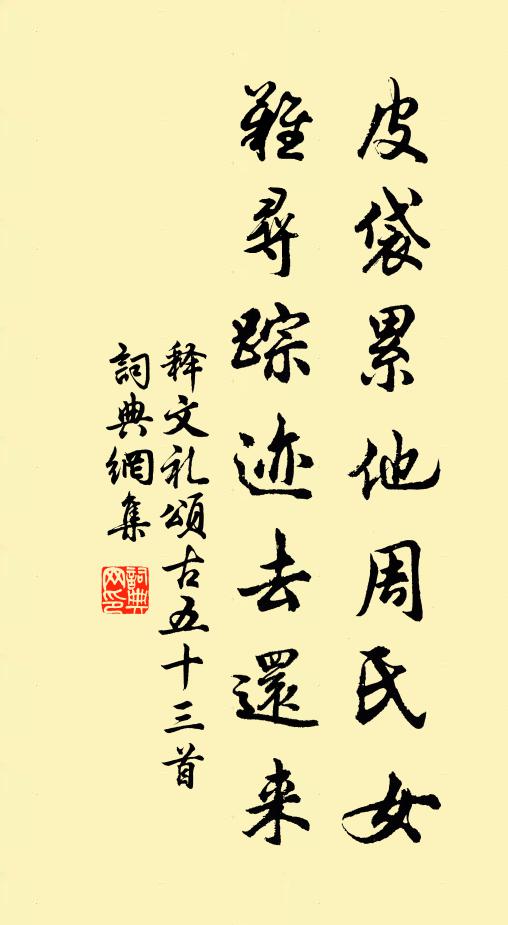 皮袋累他周氏女
難尋踪迹去還来
释文礼頌古五十三首
詞典網集
詞典網印